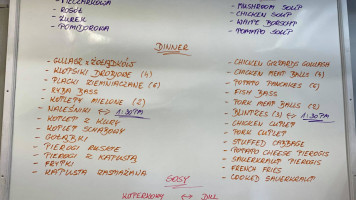 PIECZARKOWA MUSHROOM SOUP
ROSÓŁ CHICKEN SOUP
ŻUREK WHITE BORSCHT
POMIDOROWA TOMATO SOUP
DINNER
- GULASZ Z ŻOŁĄDKÓW - CHICKEN GIZZARDS GOULASH
- KLOPSIKI DROBIOWE (4) - CHICKEN MEAT BALLS (4)
- PLACKI ZIEMNIACZANE (6) - POTATO PANCAKES (6)
- RYBA BASS - FISH BASS
- KOTLETY MIELONE (2) - PORK MEAT BALLS (2)
- NALEŚNIKI ↔ 1:30PM - BLINTZES (3) ↔ 1:30PM
- KOTLET Z KURY - CHICKEN CUTLET
- KOTLET SCHABOWY - PORK CUTLET
- GOŁĄBKI - STUFFED CABBAGE
- PIEROGI RUSKIE - POTATO CHEESE PIEROGIS
- PIEROGI Z KAPUSTĄ - SAUERKRAUT PIEROGIS
- FRYTKI - FRENCH FRIES
- KAPUSTA ZASMAŻANA - COOKED SAUERKRAUT
SOSY
KOPERKOWY ↔ DILL